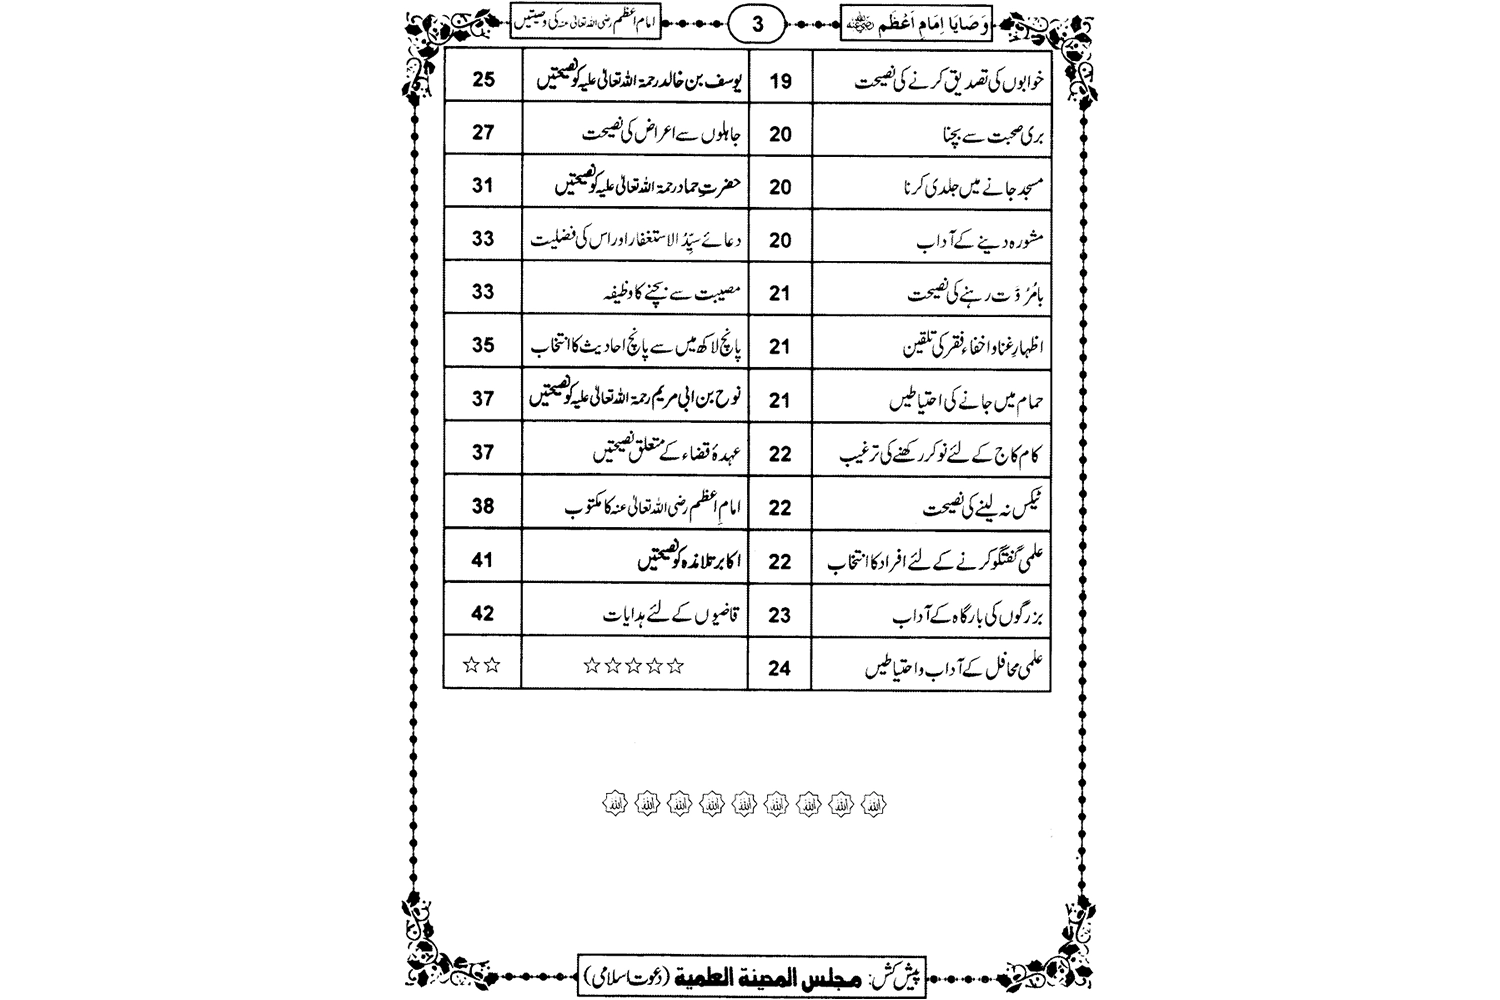 وَصَایَا اِمَامِ اَعْظَم
3
امامِ اعظم رضی اللہ تعالیٰ عنہ کی وصیتیں
خوابوں کی تصدیق کرنے کی نصیحت 19 یوسف بن خالد رحمۃ اللہ تعالیٰ علیہ کو نصیحتیں 25
بری صحبت سے بچنا 20 جاہلوں سے اعراض کی نصیحت 27
مسجد جانے میں جلدی کرنا 20 حضرتِ حماد رحمۃ اللہ تعالیٰ علیہ کو نصیحتیں 31
مشورہ دینے کے آداب 20 دعائے سیِّدُ الاستغفار اور اس کی فضلیت 33
بامُرُوَّت رہنے کی نصیحت 21 مصیبت سے بچنے کا وظیفہ 33
اظہارِ غنا و اخفاء فقر کی تلقین 21 پانچ لاکھ میں سے پانچ احادیث کا انتخاب 35
حمام میں جانے کی احتیاطیں 21 نوح بن ابی مریم رحمۃ اللہ تعالیٰ علیہ کو نصیحتیں 37
کام کاج کے لئے نوکر رکھنے کی ترغیب 22 عہدۂ قضاء کے متعلق نصیحتیں 37
ٹیکس نہ لینے کی نصیحت 22 امامِ اعظم رضی اللہ تعالیٰ عنہ کا مکتوب 38
علمی گفتگو کرنے کے لئے افراد کا انتخاب 22 اکابر تلامذہ کو نصیحتیں 41
بزرگوں کی بارگاہ کے آداب 23 قاضیوں کے لئے ہدایات 42
علمی محافل کے آداب و احتیاطیں 24 ☆☆☆☆☆ ☆☆
اللہ اللہ اللہ اللہ اللہ اللہ اللہ اللہ اللہ
پیش کش: مجلس المدینۃ العلمیۃ (دعوت اسلامی)